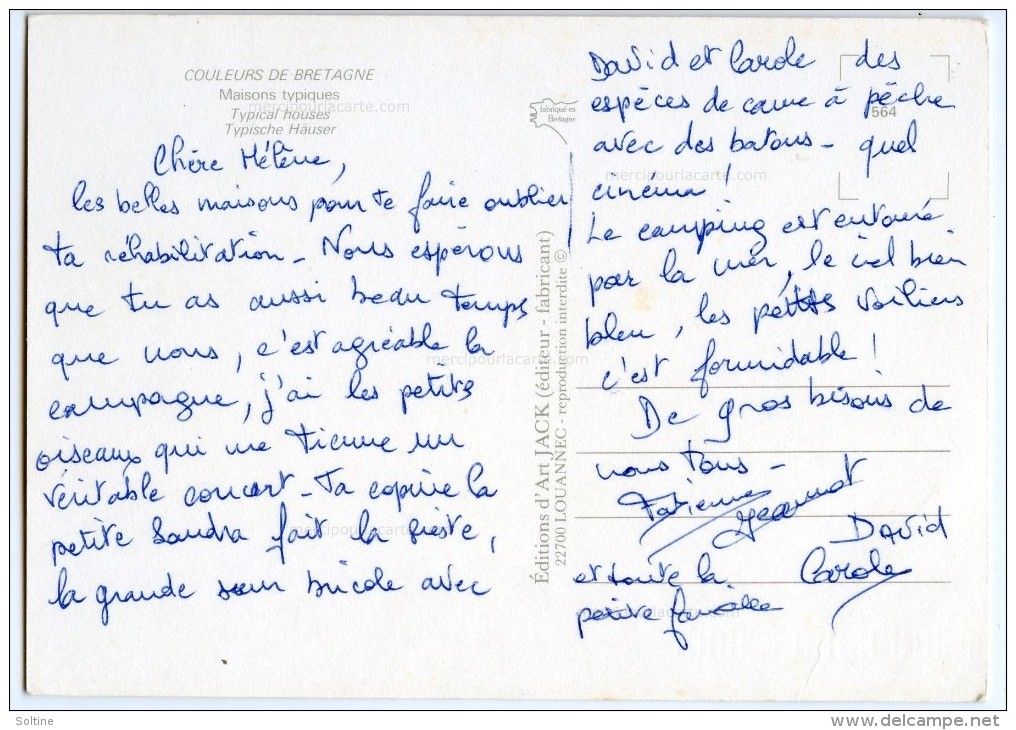 COULEURS DE BRETAGNE
Maisons typiques
Typical houses
Typische Häuser
mercipourlacarte.com
Chère Hélène,
les belles maisons pour te faire oublier
ta réhabilitation - Nous espérons
que tu as aussi beau temps
que nous, c'est agréable la
campagne, j'ai les petits
oiseaux qui me tienne un
véritable concert - Ta copine la
petite Sandra fait la sieste,
la grande sœur bricole avec
fabriqué en
Bretagne
Éditions d'Art JACK (éditeur - fabricant)
22700 LOUANNEC - reproduction interdite ©
564
David et Carole des
espèces de canne à pêche
avec des batons - quel
cinéma !
Le camping est entouré
par la mer, le ciel bien
bleu, les petits voiliers
c'est formidable !
De gros bisous de
nous tous -
Fabienne
Jeannot
DAVID
et toute la Carole
petite famille
mercipourlacarte.com
mercipourlacarte.com
mercipourlacarte.com
mercipourlacarte.com
Soltine
www.delcampe.net